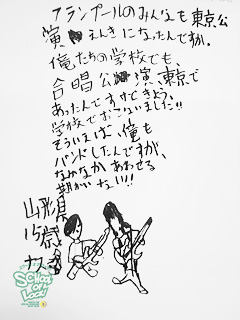 フランプールのみんなも東京公
演えんきになったんですか。
俺たちの学校でも、
合唱公演、東京で
あったんですけどきょう、
学校でおこないました!!
そういえば、俺も
バンドしたんですが、
なかなかあわせる
期かいない!!
山形県
15歳
SCHOOL OF LOCK!